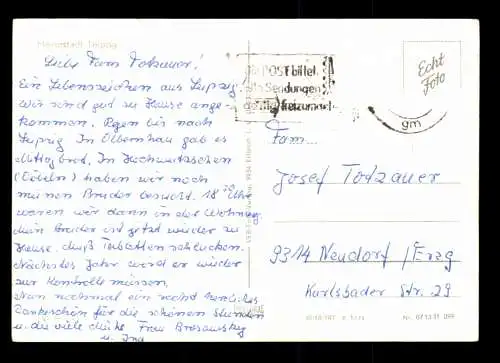 Messestadt Leipzig
Liebe Fam. Totzauer!
Ein Lebenszeichen aus Leipzig.
Wir sind gut zu Hause ange-
kommen. Regen bis nach
Leipzig. In Olbernhau gab es
Mittagbrot. In Hochweitzschen
(Döbeln) haben wir noch
meinen Bruder besucht. 18 Uhr
waren wir dann in der Wohnung
Mein Bruder ist jetzt wieder zu
Hause, muß Tabletten schlucken.
Nächstes Jahr wird er wieder
zur Kontrolle müssen.
Nun nochmal ein recht herzliches
Dankeschön für die schönen Stunden
u. die viele Mühe Frau
u. Ina
POST bittet
alle Sendungen
freizumachen
Echt
Foto
gm
Fam...
Josef Totzauer
9314 Neudorf / Erzg
Karlsbader Str. 29